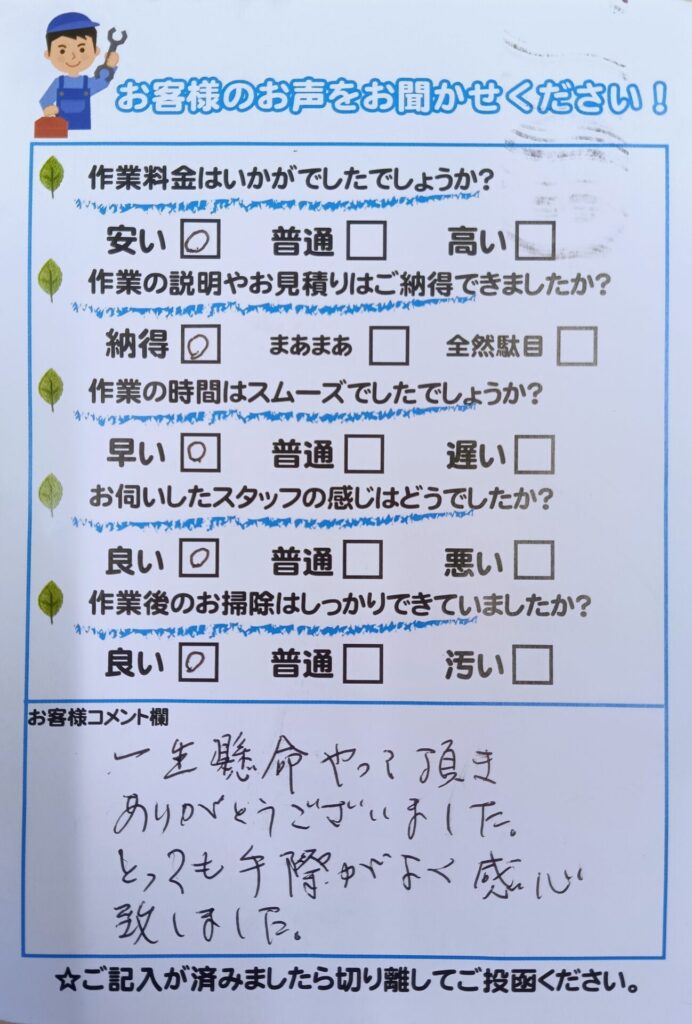 お客様のお声をお聞かせください！
作業料金はいかがでしたでしょうか?
安い 普通 高い
作業の説明やお見積りはご納得できましたか?
納得 まあまあ 全然駄目
作業の時間はスムーズでしたでしょうか?
早い 普通 遅い
お伺いしたスタッフの感じはどうでしたか?
良い 普通 悪い
作業後のお掃除はしっかりできていましたか?
良い 普通 汚い
お客様コメント欄
一生懸命やって頂き
ありがとうございました。
とっても手際がよく感心
致しました。
☆ご記入が済みましたら切り離してご投函ください。